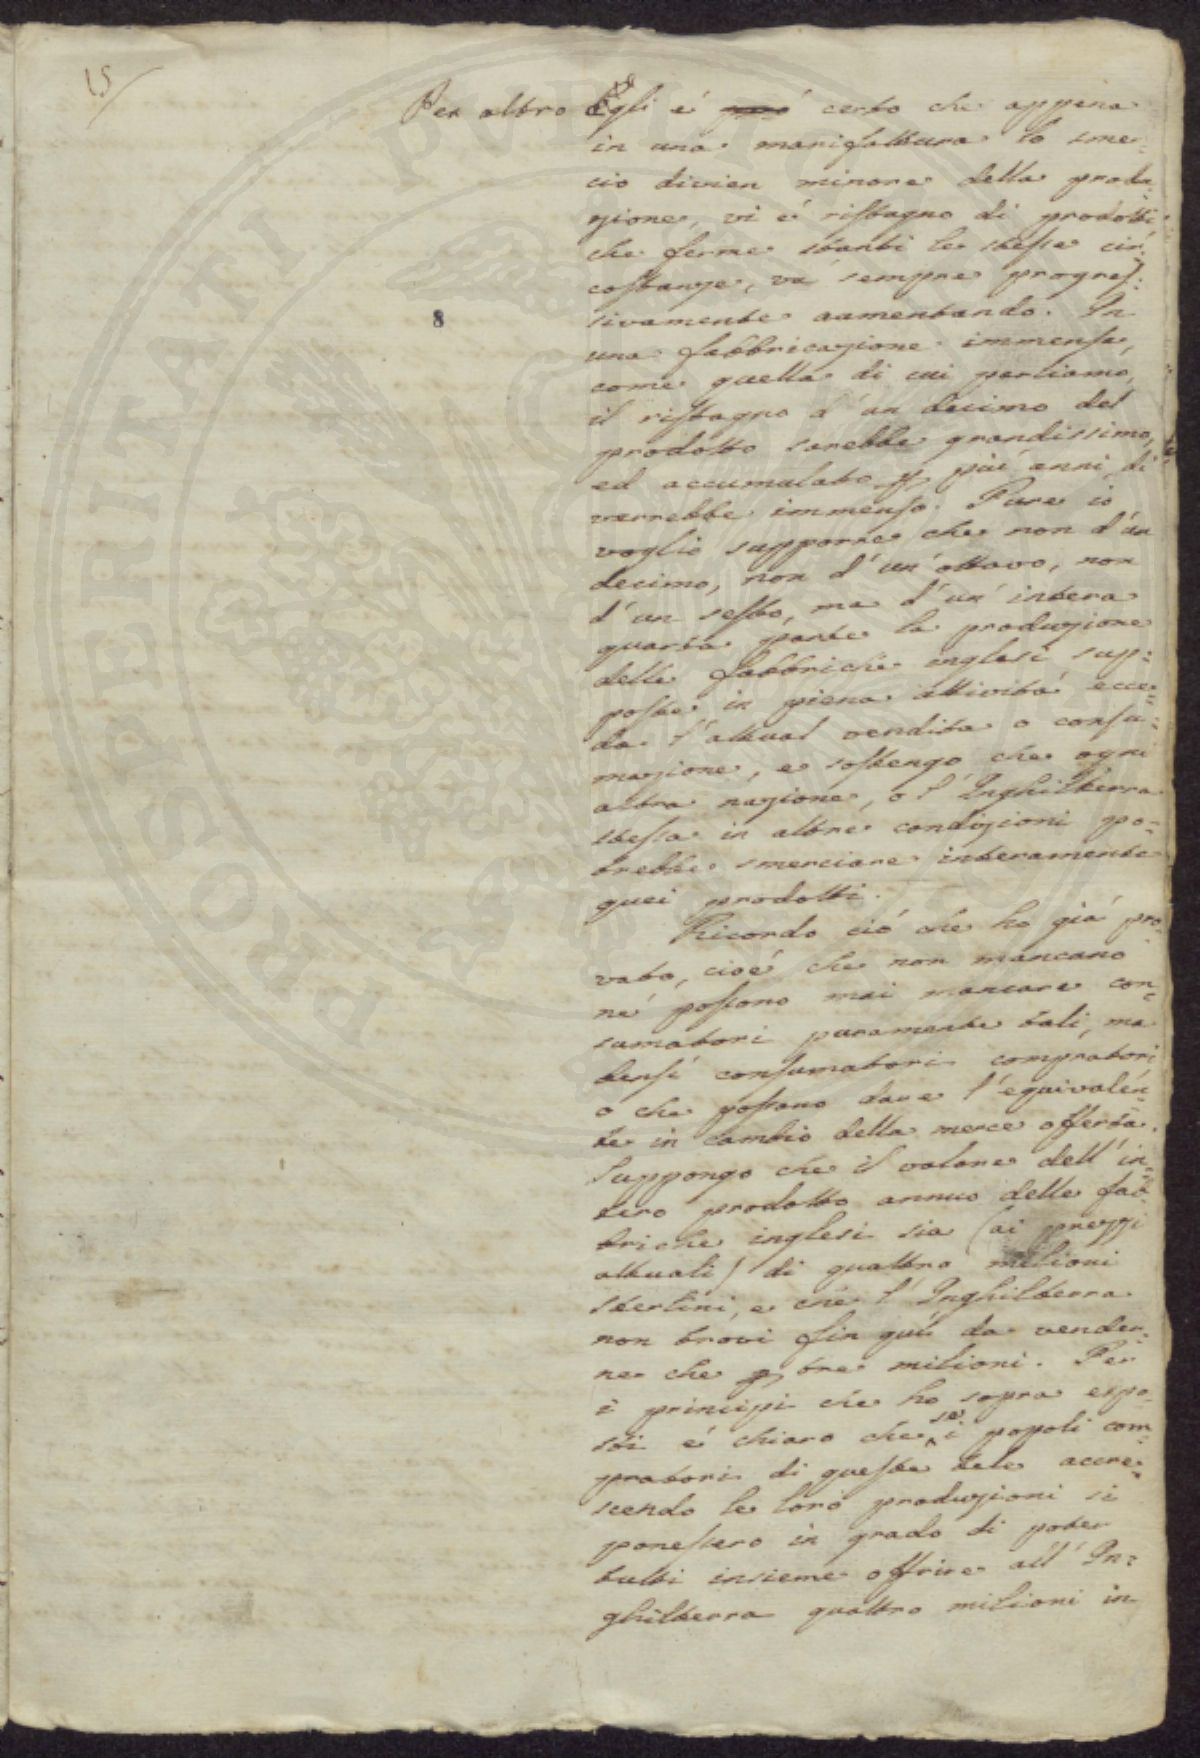 15
Per altro Egli é certo che appena
in una manifattura lo smer-
cio divien minore della produ-
zione, vi é ristagno di prodotti
che ferme stanti le stesse cir-
costanze, va sempre progres-
sivamente aumentando. In
8
una fabbricazione immensa,
come quella di cui parliamo,
il ristagno d'un decimo del
prodotto sarebbe grandissimo,
ed accumulato p più anni di
verrebbe immenso. Pure io
voglio supporre che non d'un
decimo, non d'un ottavo, non
d'un sesto, ma d'un'intera
quarta parte la produzione
delle fabbriche inglesi sup-
poste in piena attività ecce-
da l'attual vendita o consu-
mazione, e sostengo che ogni
altra nazione, o l'Inghilterra
stessa in altre condizioni po-
trebbe smerciare interamente
quei prodotti.
Ricordo ció che ho giá pro-
vato, cioé che non mancano
né possono mai mancare con-
sumatori puramente tali, ma
bensí consumatori compratori
o che possano dare l'equivalen-
te in cambio della merce offerta.
Suppongo che il valore dell'in-
tero prodotto annuo delle fab-
briche inglesi sia (ai prezzi
attuali) di quattro milioni
sterlini, e che l'Inghilterra
non trovi fin quì da vender-
ne che p tre milioni. Per
i principi che ho sopra espo-
sti é chiaro che se i popoli com-
pratori di queste tele accre-
scendo le loro produzioni si
ponessero in grado di poter
tutti insieme offrire all'In-
ghilterra quattro milioni in
PROSPERITATI PVBLIC